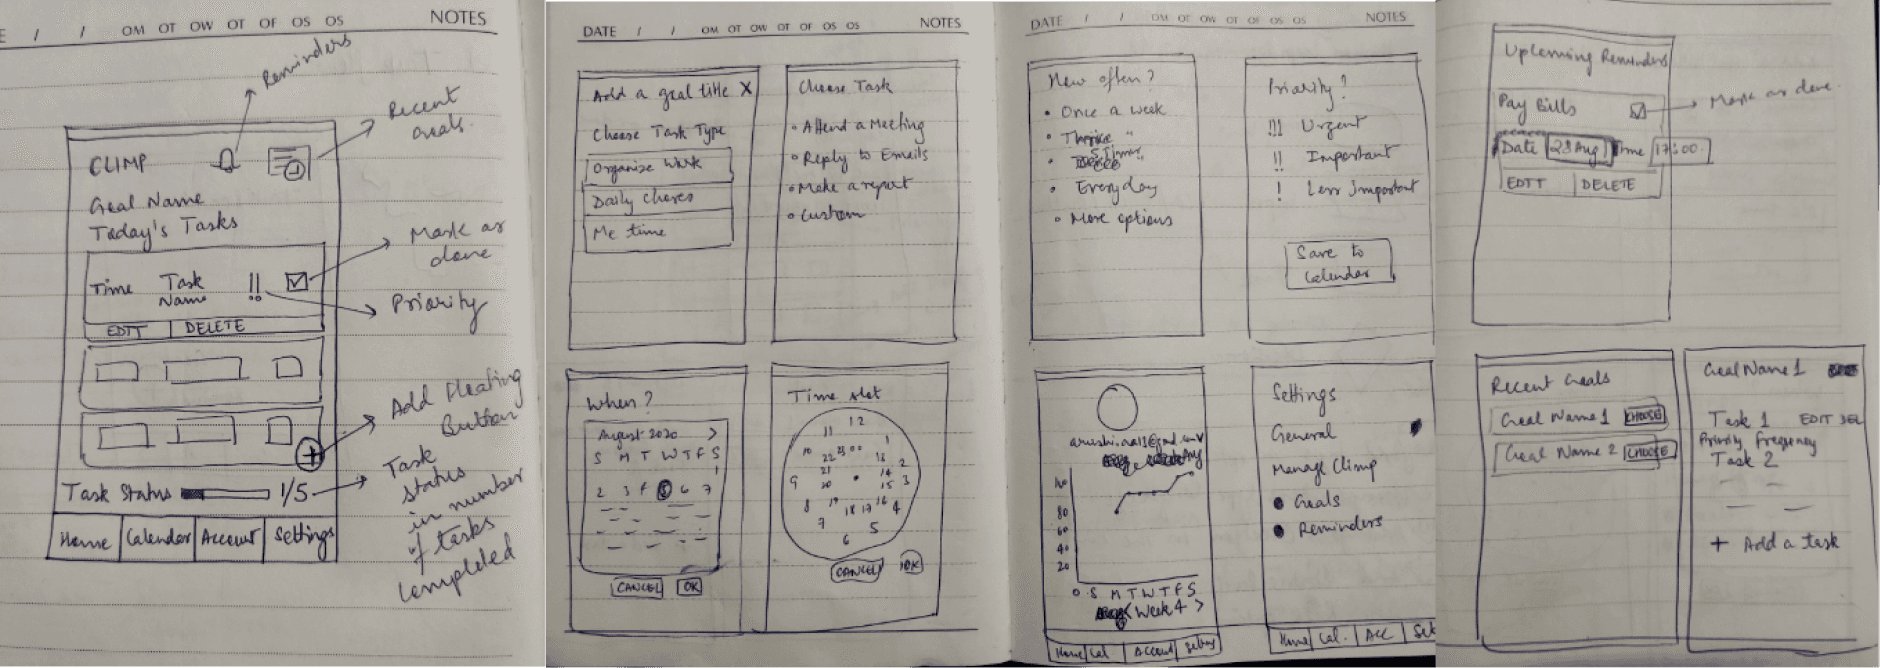 / / OM OT OW OT OF OS OS NOTES
Reminders
Recent Goals
CLIMP
Goal Name
Today's Tasks
Time Task Name !!
EDIT DELETE
Mark as done
Priority
Add Floating Button
Task Status 1/5
Task status in number of tasks completed
Home Calendar Account Settings
DATE / / OM OT OW OT OF OS OS NOTES
Add a goal title X
Choose Task Type
Organize Work
Daily Chores
Me time
Choose Task
• Attend a Meeting
• Reply to Emails
• Make a report
• Custom
When?
August 2020 >
S M T W T F S
1
2 3 4 5 6 7
CANCEL OK
Time slot
12
11 1
10 22 23 00 13 2
21 14
9 20 15 3
8 19 18 17 16 4
7 5
6
CANCEL OK
DATE / / OM OT OW OT OF OS OS NOTES
How often?
• Once a week
• Thrice "
• 5 Times "
• Everyday
• More options
Priority?
!!! Urgent
!! Important
! Less Important
Save to Calendar
100
80
60
40
20
0 S M T W T F S
< Week 4 >
Home Cal Account Settings
Settings
General
Manage Climp
• Goals
• Reminders
Home Cal. Acc Set
Upcoming Reminders
Pay Bills
Mark as done.
Date 28 Aug Time 17:00
EDIT DELETE
Recent Goals
Goal Name 1 CHOOSE
Goal Name 2 CHOOSE
Goal Name 1
Task 1 EDIT DEL
Priority Frequency
Task 2
+ Add a task